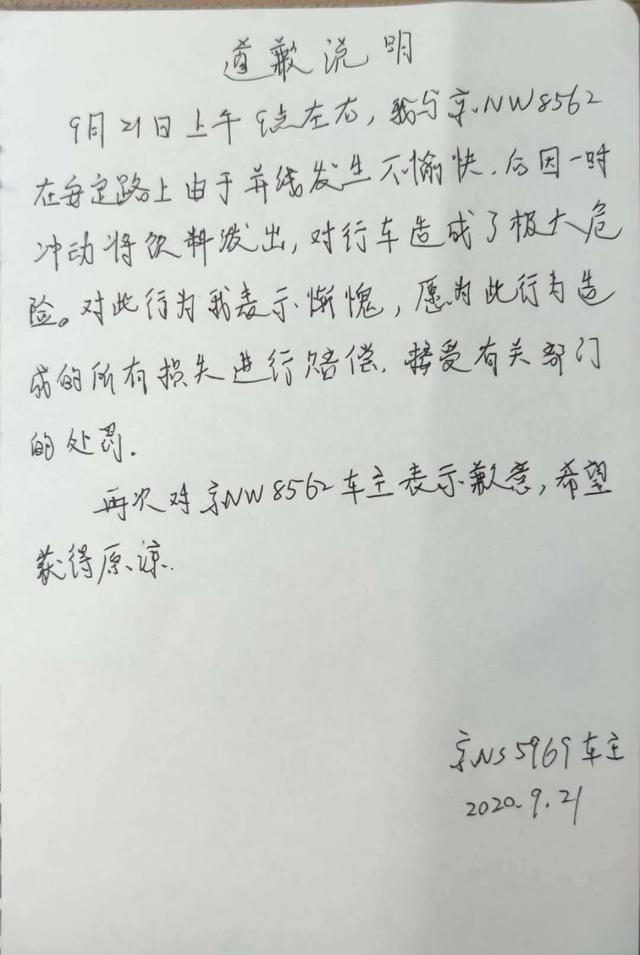 道歉说明
9月21日上午9点左右，我与京NW8562
在安定路上由于并线发生不愉快，后因一时
冲动将饮料泼出，对行车造成了极大危
险。对此行为我表示惭愧，愿为此行为造
成的所有损失进行赔偿，接受有关部门
的处罚.
再次对京NW8562车主表示歉意，希望
获得原谅.
京NS5969车主
2020.9.21